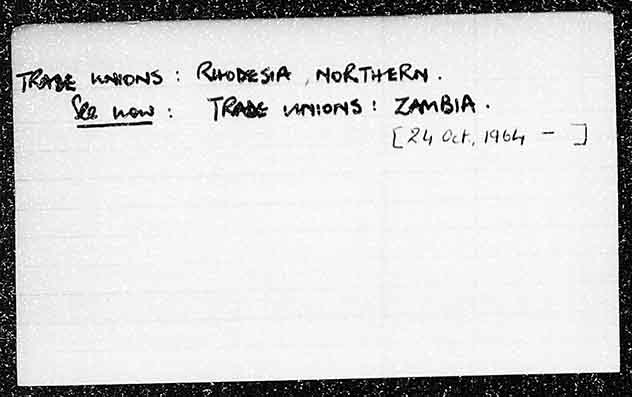 TRADE UNIONS : RHODESIA, NORTHERN.
See now : TRADE UNIONS : ZAMBIA.
[24 Oct, 1964 – ]